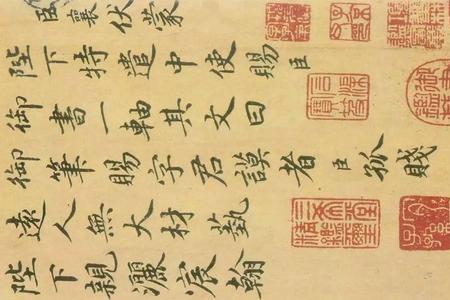 臣襄伏蒙
陛下特遣中使賜臣
御書一軸其文曰
御筆賜字君謨者臣孤賤
遠人無大材藝
陛下親灑宸翰